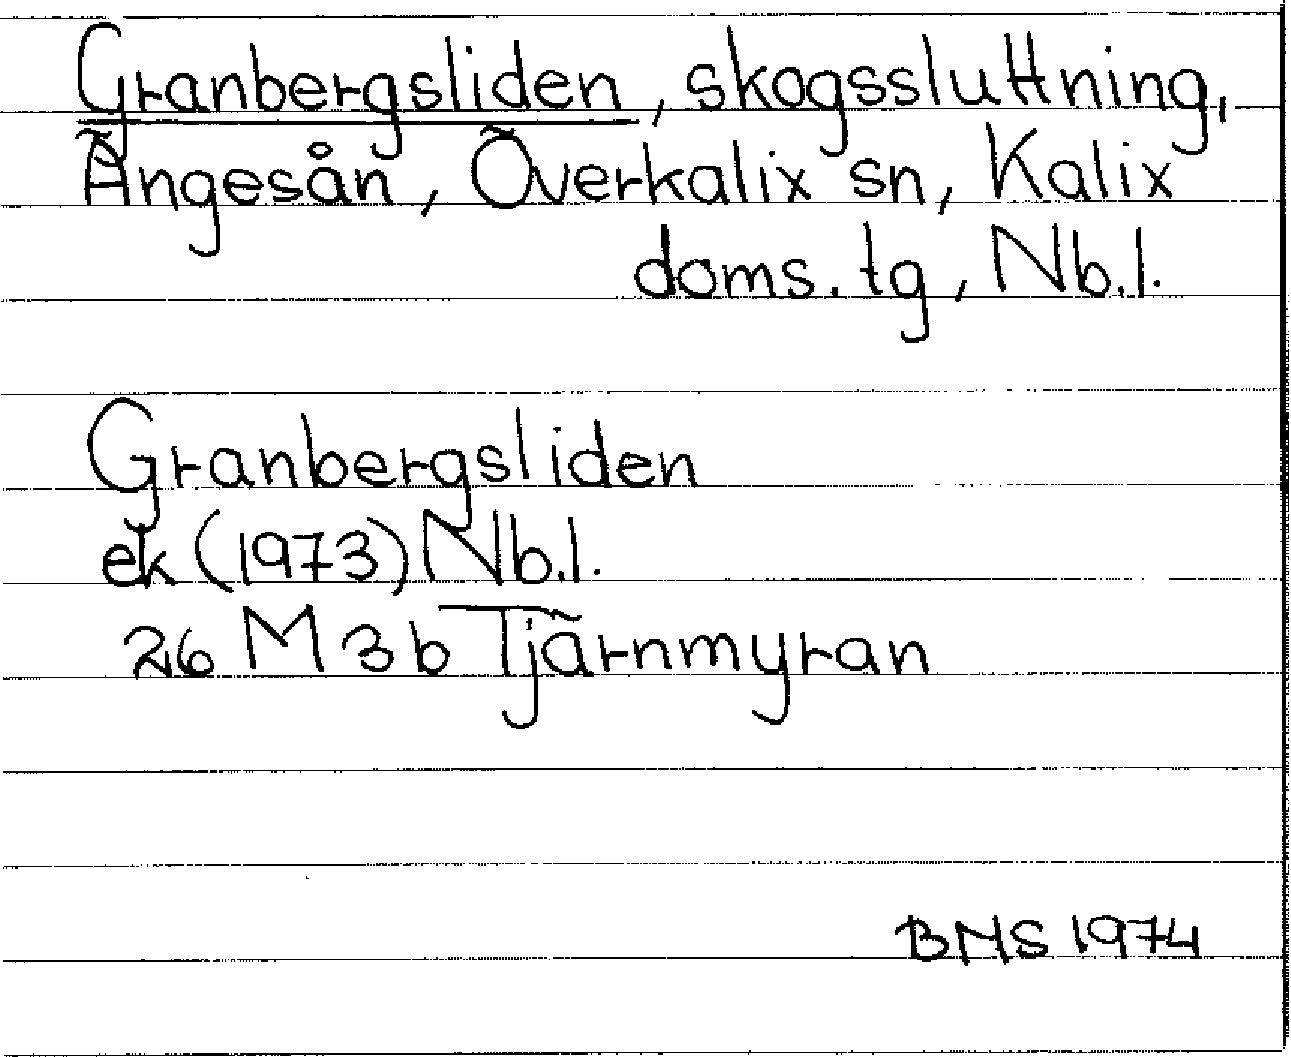 Granbergsliden, skogssluttning,
Ängesån, Överkalix sn, Kalix
doms. tg, Nb.l.
Granbergsliden
ek (1973) Nb.l.
26 M 3 b Tjärnmyran
BMS 1974